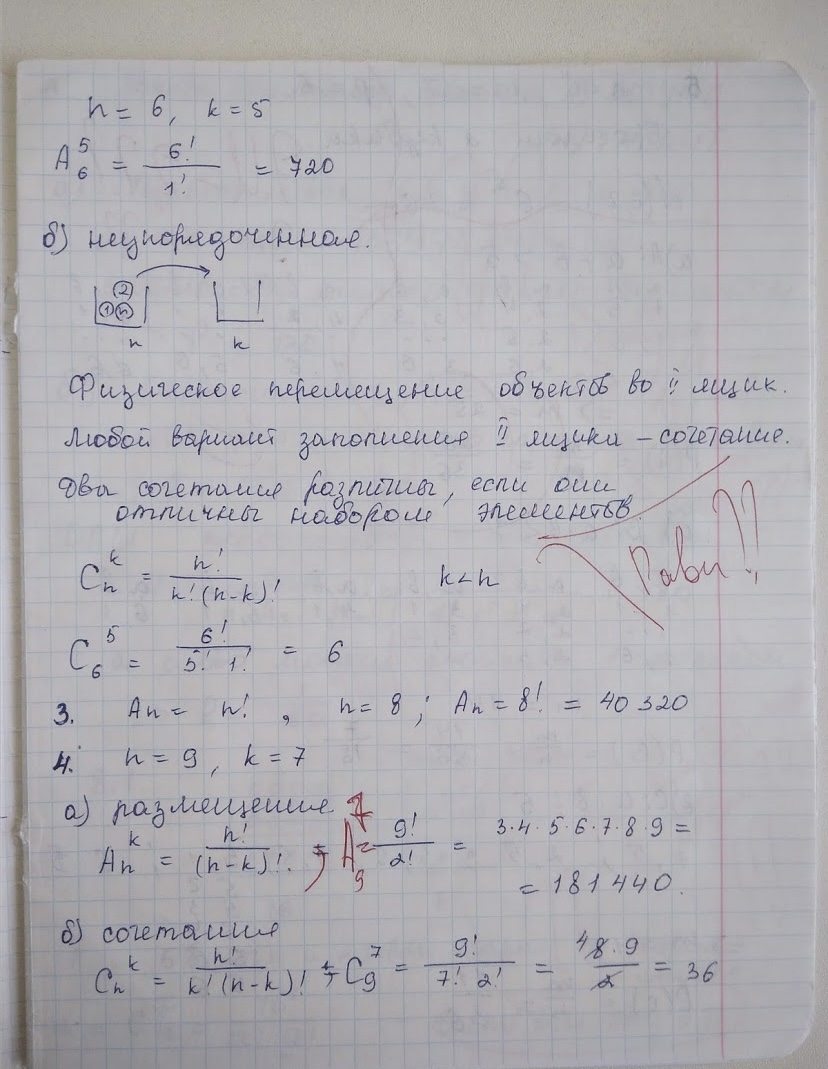 n = 6, k = 5
A₆⁵ = 6! / 1! = 720
б) неупорядоченная.
2
1 n
n k
Физическое перемещение объектов во II ящик.
Любой вариант заполнения II ящика – сочетание.
Два сочетания различны, если они
отличны набором элементов.
Cₙᵏ = n! / n!(n-k)! k<n
!!
C₆⁵ = 6! / 5! 1! = 6
3. Aₙ = n! , n = 8 ; Aₙ = 8! = 40 320
4. n = 9, k = 7
а) размещение
Aₙᵏ = n! / (n-k)!. ; A₉⁷ = 9! / 2! = 3·4·5·6·7·8·9 =
= 181 440.
б) сочетания
Cₙᵏ = n! / k!(n-k)! ; C₉⁷ = 9! / 7! 2! = ⁴8·9 / 2 = 36